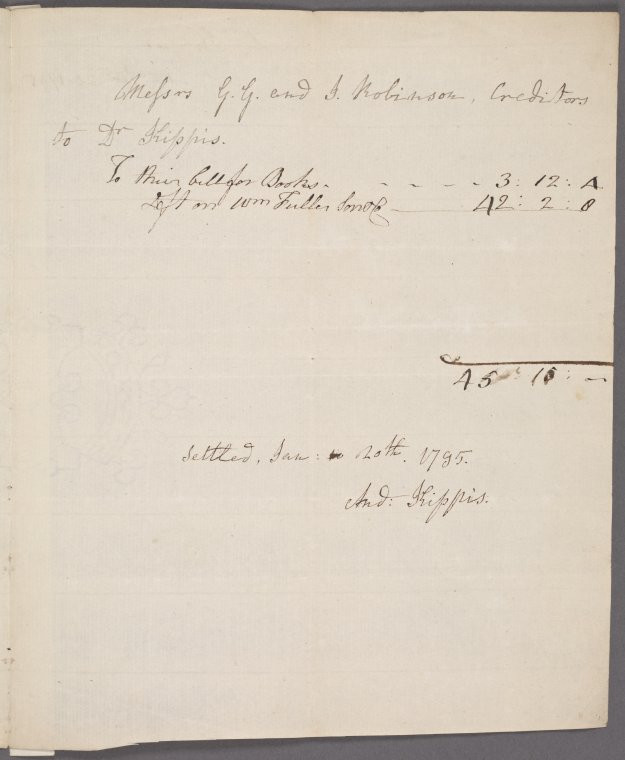 Messrs G.G. and J. Robinson, Creditors
to Dr Kippis.
To their bill for Books - - - - 3: 12: 4
Dft on Wm Fuller Son & Co 42: 2: 8
45: 15: —
Settled, Jan: 20th. 1795.
And: Kippis.